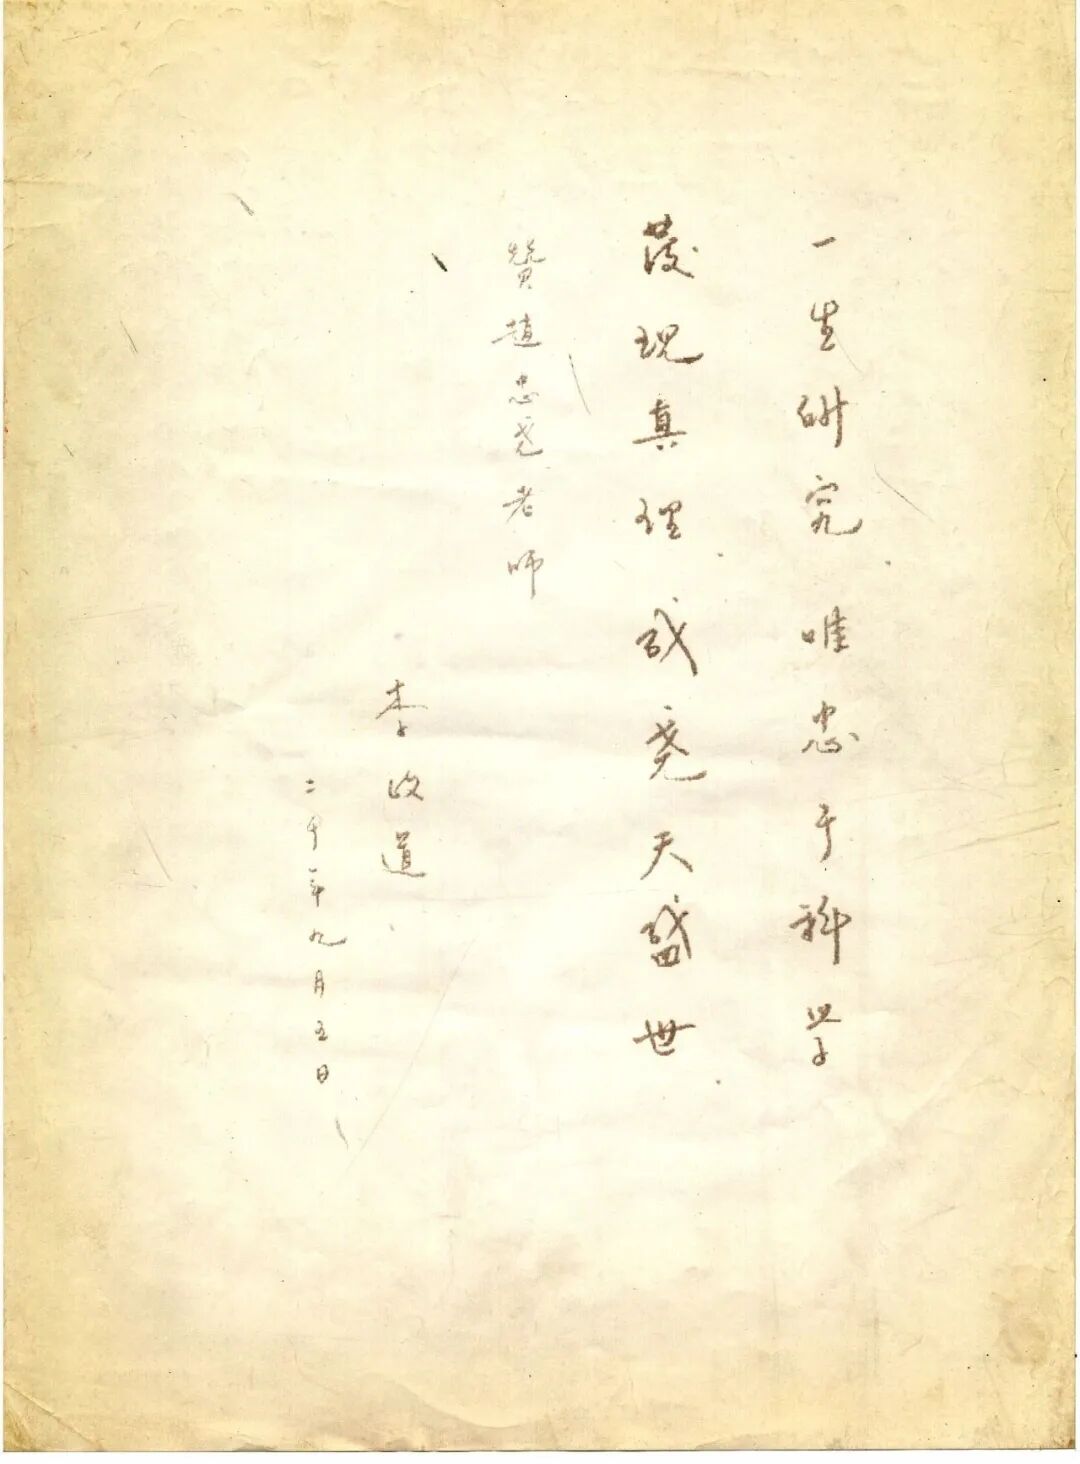 一生研究 唯忠于科学
發现真理 成尧天盛世
贊趙忠尧老师
李政道
二千年九月五日